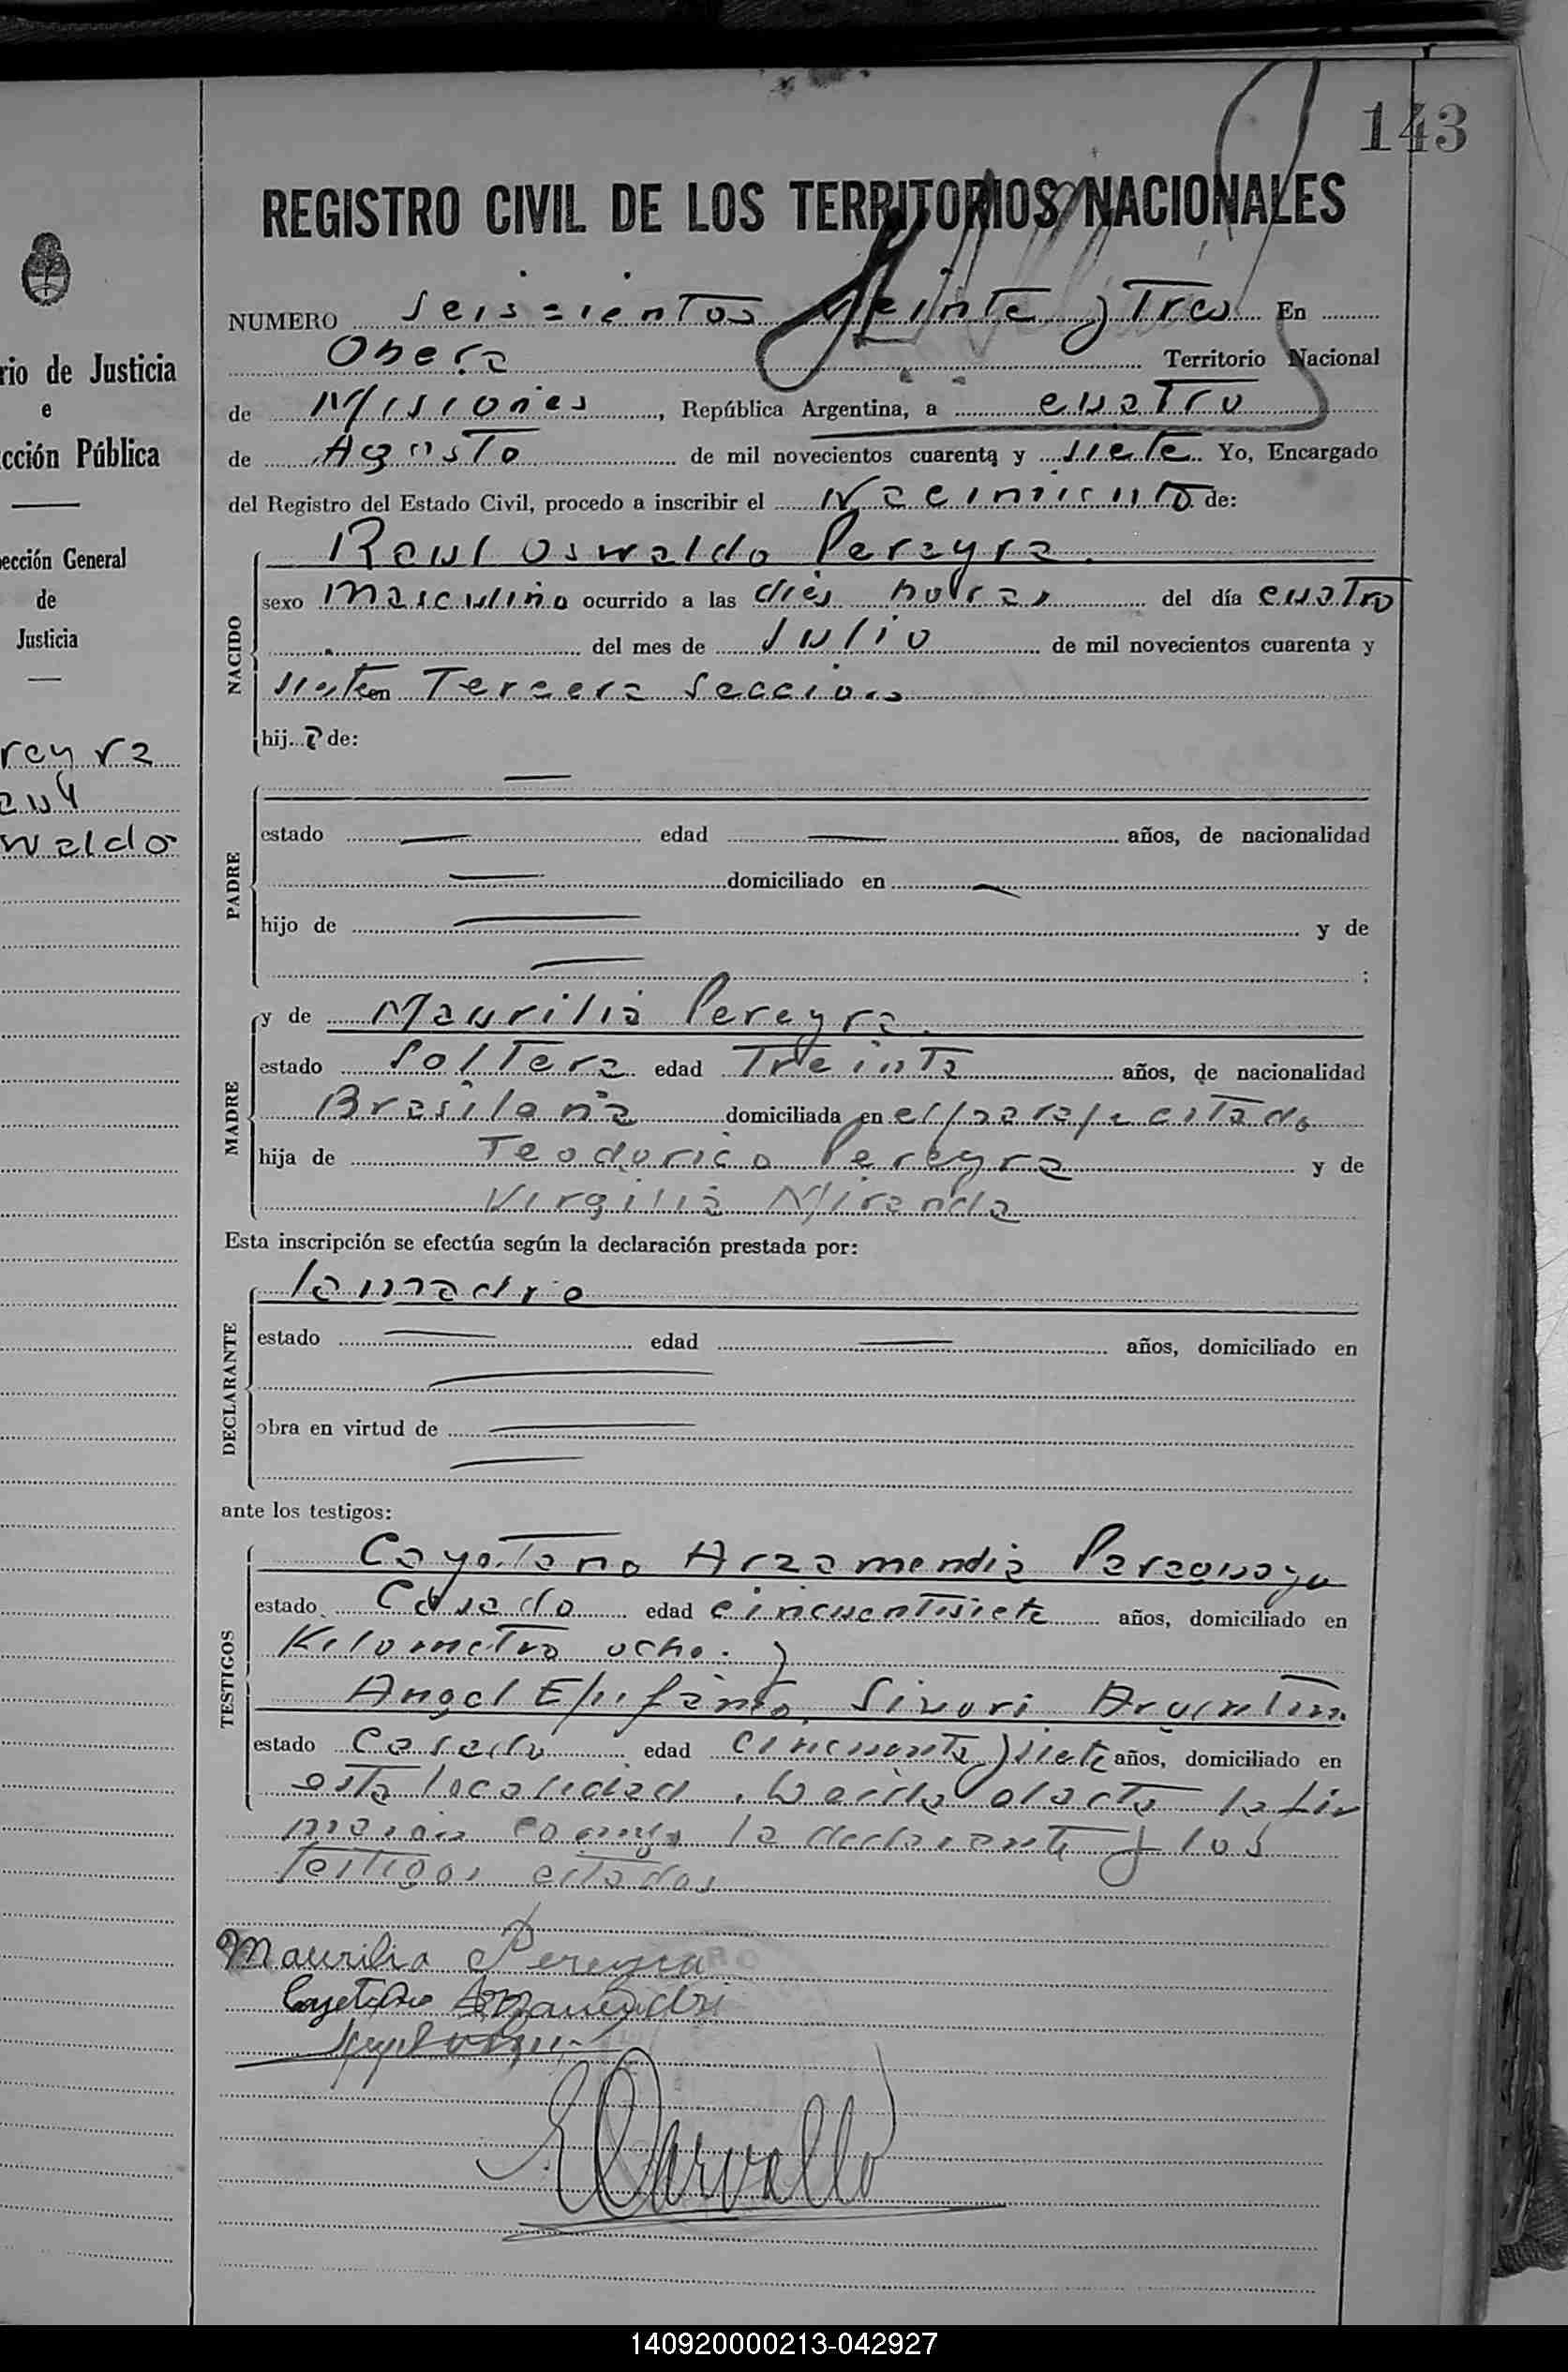 143
REGISTRO CIVIL DE LOS TERRITORIOS NACIONALES
NUMERO seiscientos veinte y tres En
Obera Territorio Nacional
de Misiones, República Argentina, a cuatro
de Agosto de mil novecientos cuarenta y siete Yo, Encargado
del Registro del Estado Civil, procedo a inscribir el Nacimiento de:
NACIDO
Raul Oswaldo Pereyra.
sexo masculino ocurrido a las dies horas del día cuatro
del mes de Julio de mil novecientos cuarenta y
siete en Tercera Seccion
hij de:
PADRE
estado — edad — años, de nacionalidad
— domiciliado en —
hijo de — y de
— ;
MADRE
y de Maurilia Pereyra.
estado Soltera edad Treinta años, de nacionalidad
Brasileña domiciliada en el paraje citado
hija de Teodorico Pereyra y de
Virgilia Miranda
Esta inscripción se efectúa según la declaración prestada por:
DECLARANTE
la madre
estado — edad — años, domiciliado en
—
obra en virtud de —
—
ante los testigos:
TESTIGOS
Cayetano Arzamendia Paraguayo
estado Casado edad cincuentisiete años, domiciliado en
Kilometro ocho. y
Angel Epifanio Sivori Argentino
estado Casado edad cincuenta y siete años, domiciliado en
esta localidad. Leida el acta la fir
maron conmigo la declarante y los
testigos citados
Maurilia Pereyra
Cayetano Arzamendia
E Carvallo
rio de Justicia
e
cción Pública
ección General
de
Justicia
reyra
aul
waldo
140920000213-042927